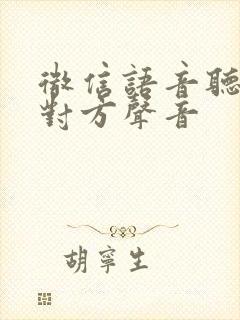 微信語音聽
對方聲音
胡寧生